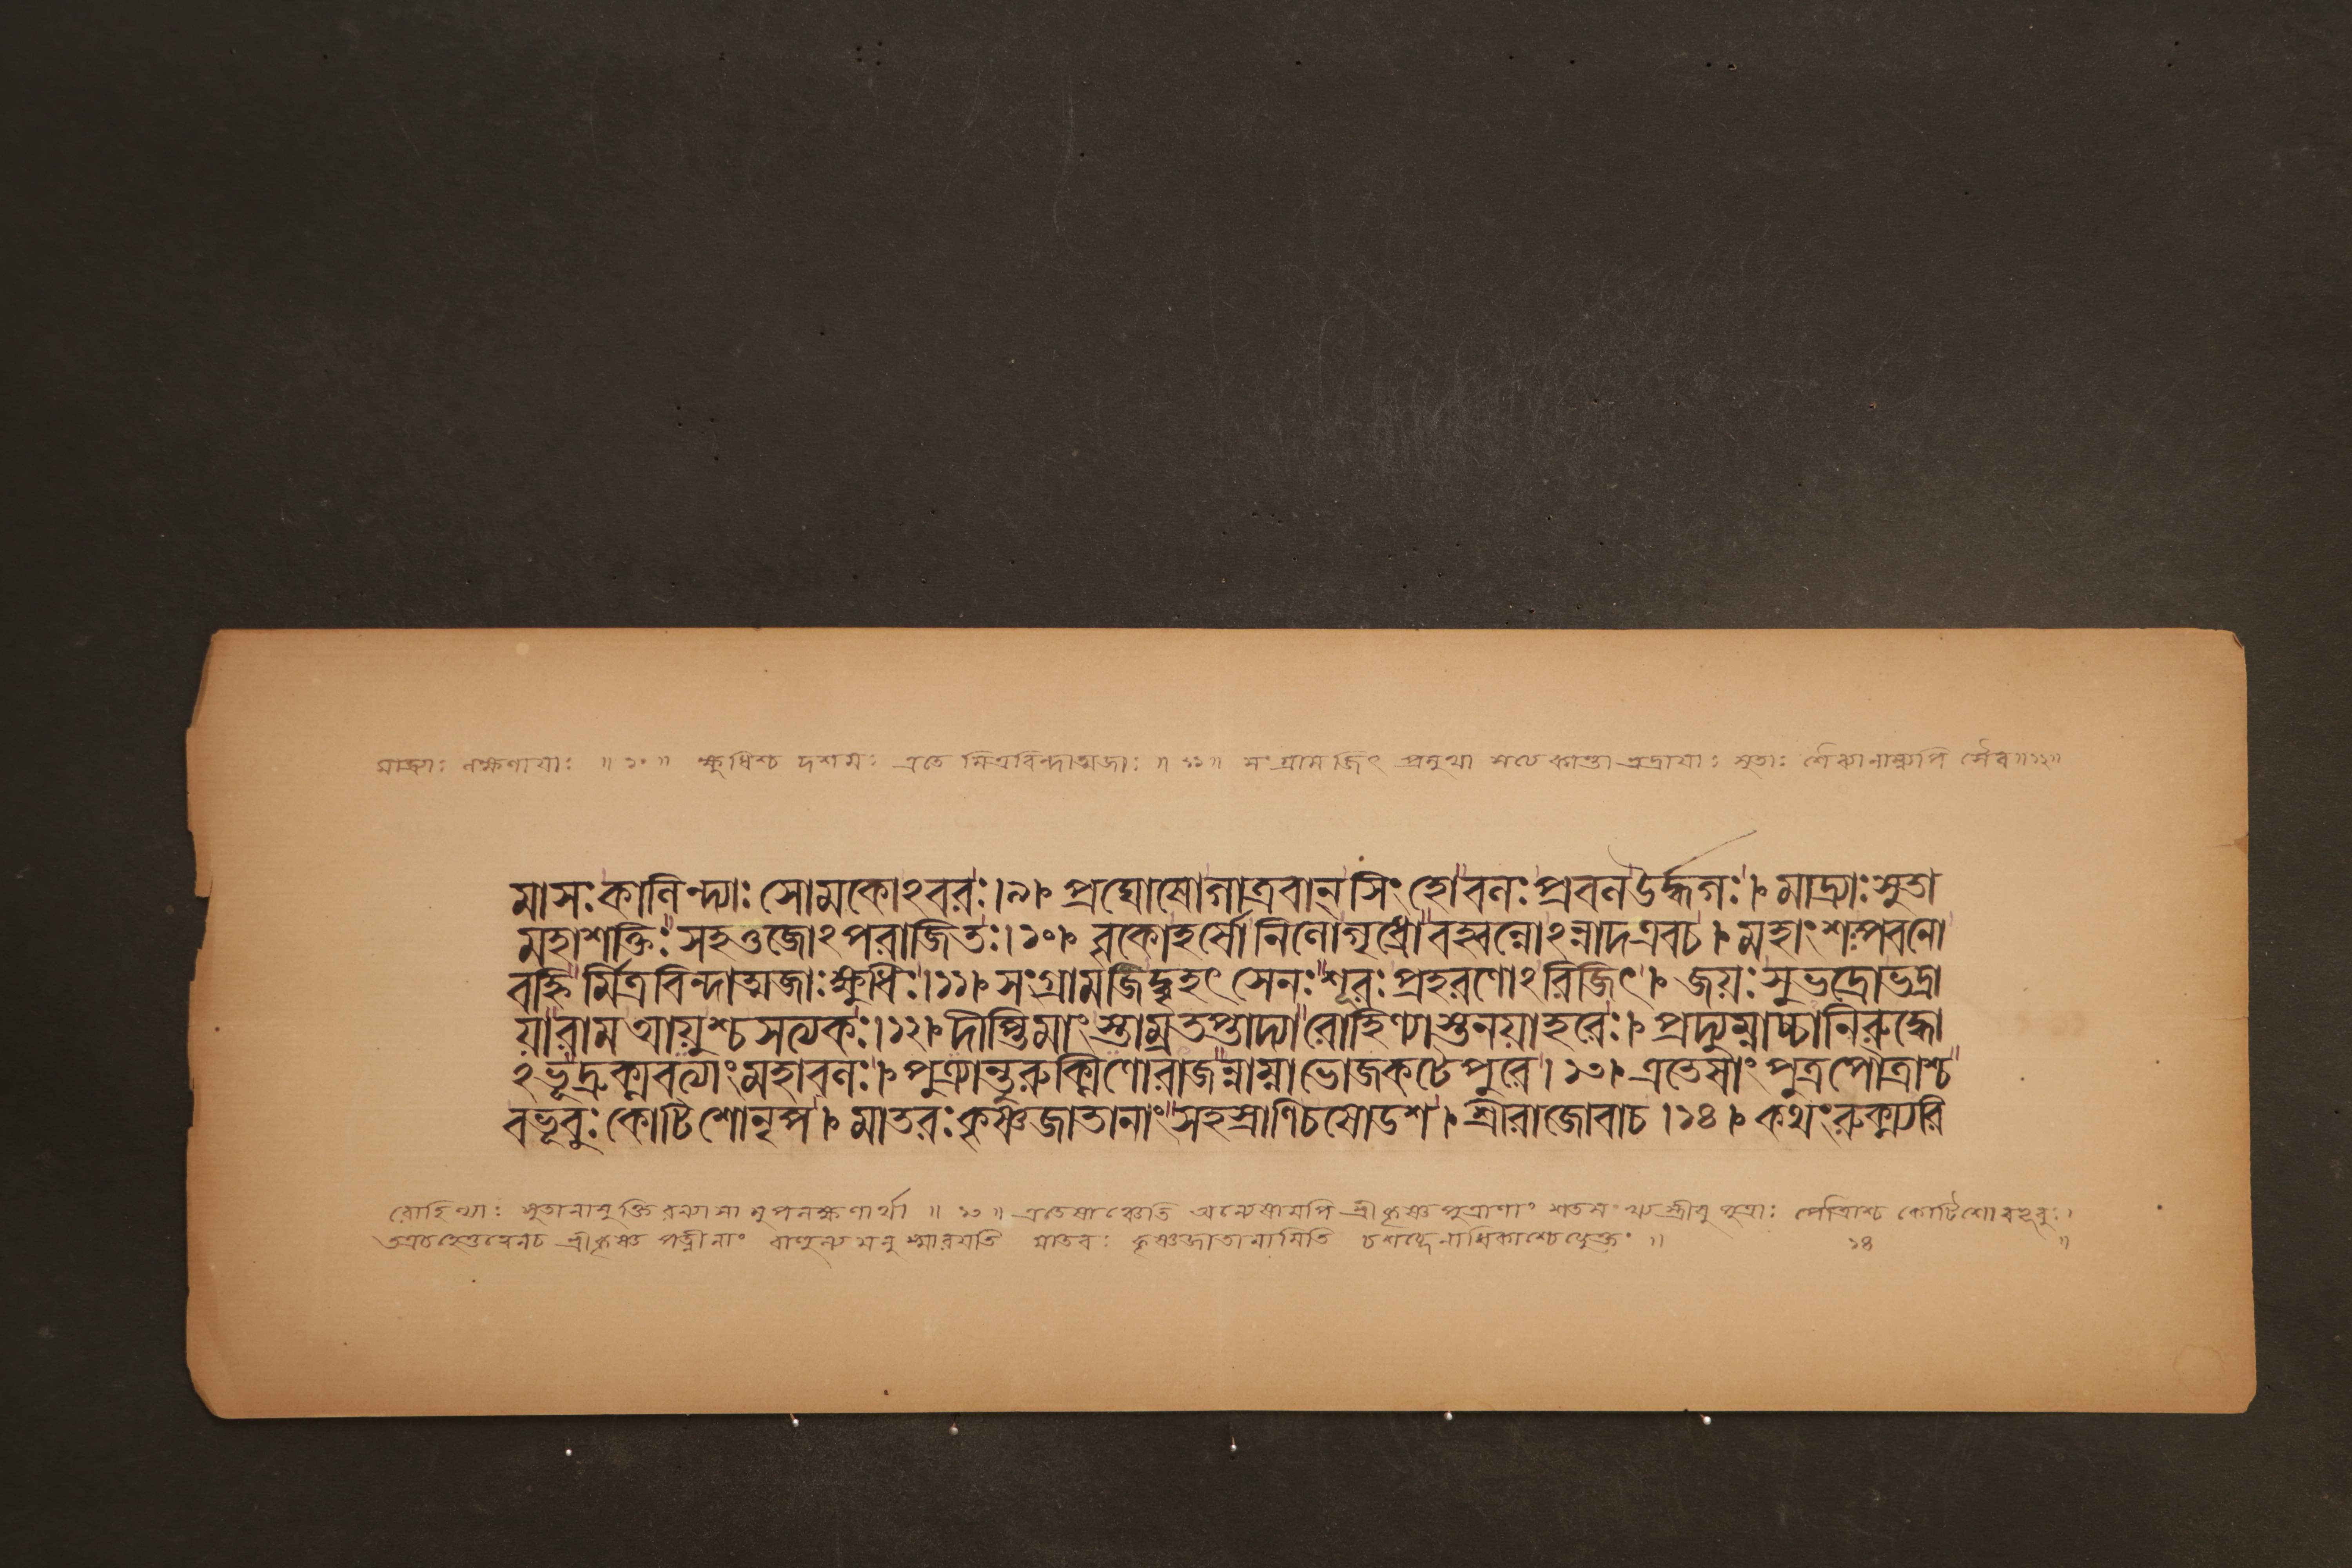 মাদ্র্যাঃ লক্ষণায়াঃ ॥ ১০ ॥ ক্ষুধিশ্চ দশমঃ এতে মিত্রবিন্দাত্মজাঃ ॥ ১১ ॥ সংগ্রামজিৎ প্রমুখা ভদ্রায়াঃ সুতাঃ ॥ ১২ ॥
মাসঃ কালিন্দ্যাঃ সোমকোঽবরঃ।৯। প্রঘোষোগাত্রবান্ সিংহোবলঃ প্রবলঊর্দ্ধ্বগঃ। মাদ্র্যাঃ সুতা
মহাশক্তিঃ সহওজোঽপরাজিতঃ।১০। বৃকোহর্ষোনিলোগৃধ্রোবহ্বন্নোঽন্নাদএবচ। মহাংশপ্পবনো
বহ্নির্মিত্রবিন্দাত্মজাঃ ক্ষুধিঃ।১১। সংগ্রামজিদ্বৃহৎসেনঃ শূরঃ প্রহরণোঽরিজিৎ। জয়ঃ সুভদ্রোভদ্রা
য়ারাম আয়ুশ্চসত্যকঃ।১২। দীপ্তিমাংস্তাম্রতপ্তাদ্যারোহিণ্যাস্তনয়াহরেঃ। প্রদ্যুম্নাচ্চানিরুদ্ধো
ঽভূদ্রুক্মবত্যাংমহাবলঃ। পুত্র্যান্তুরুক্মিণোরাজন্নাম্নাভোজকটেপুরে।১৩। এতেষাংপুত্রপৌত্রাশ্চ
বভূবুঃ কোটিশোনৃপ। মাতরঃ কৃষ্ণজাতানাংসহস্রাণিচষোডশ। শ্রীরাজোবাচ।১৪। কথংরুক্ম্যরি
রোহিণ্যাঃ সুতানামুক্তিরন্যাসামুপলক্ষণার্থা ॥ ১৩ ॥ এতেষাঞ্চেতি অন্যেষামপি শ্রীকৃষ্ণপুত্রাণাং পুত্রাঃ পৌত্রাশ্চ কোটিশোবভূবুঃ।
শ্রীকৃষ্ণপত্নীনাং বাহুল্যমনুস্মারয়তি মাতরঃ কৃষ্ণজাতানামিতি চশব্দেনাধিকাশ্চেত্যুক্তং ॥ ১৪ ॥